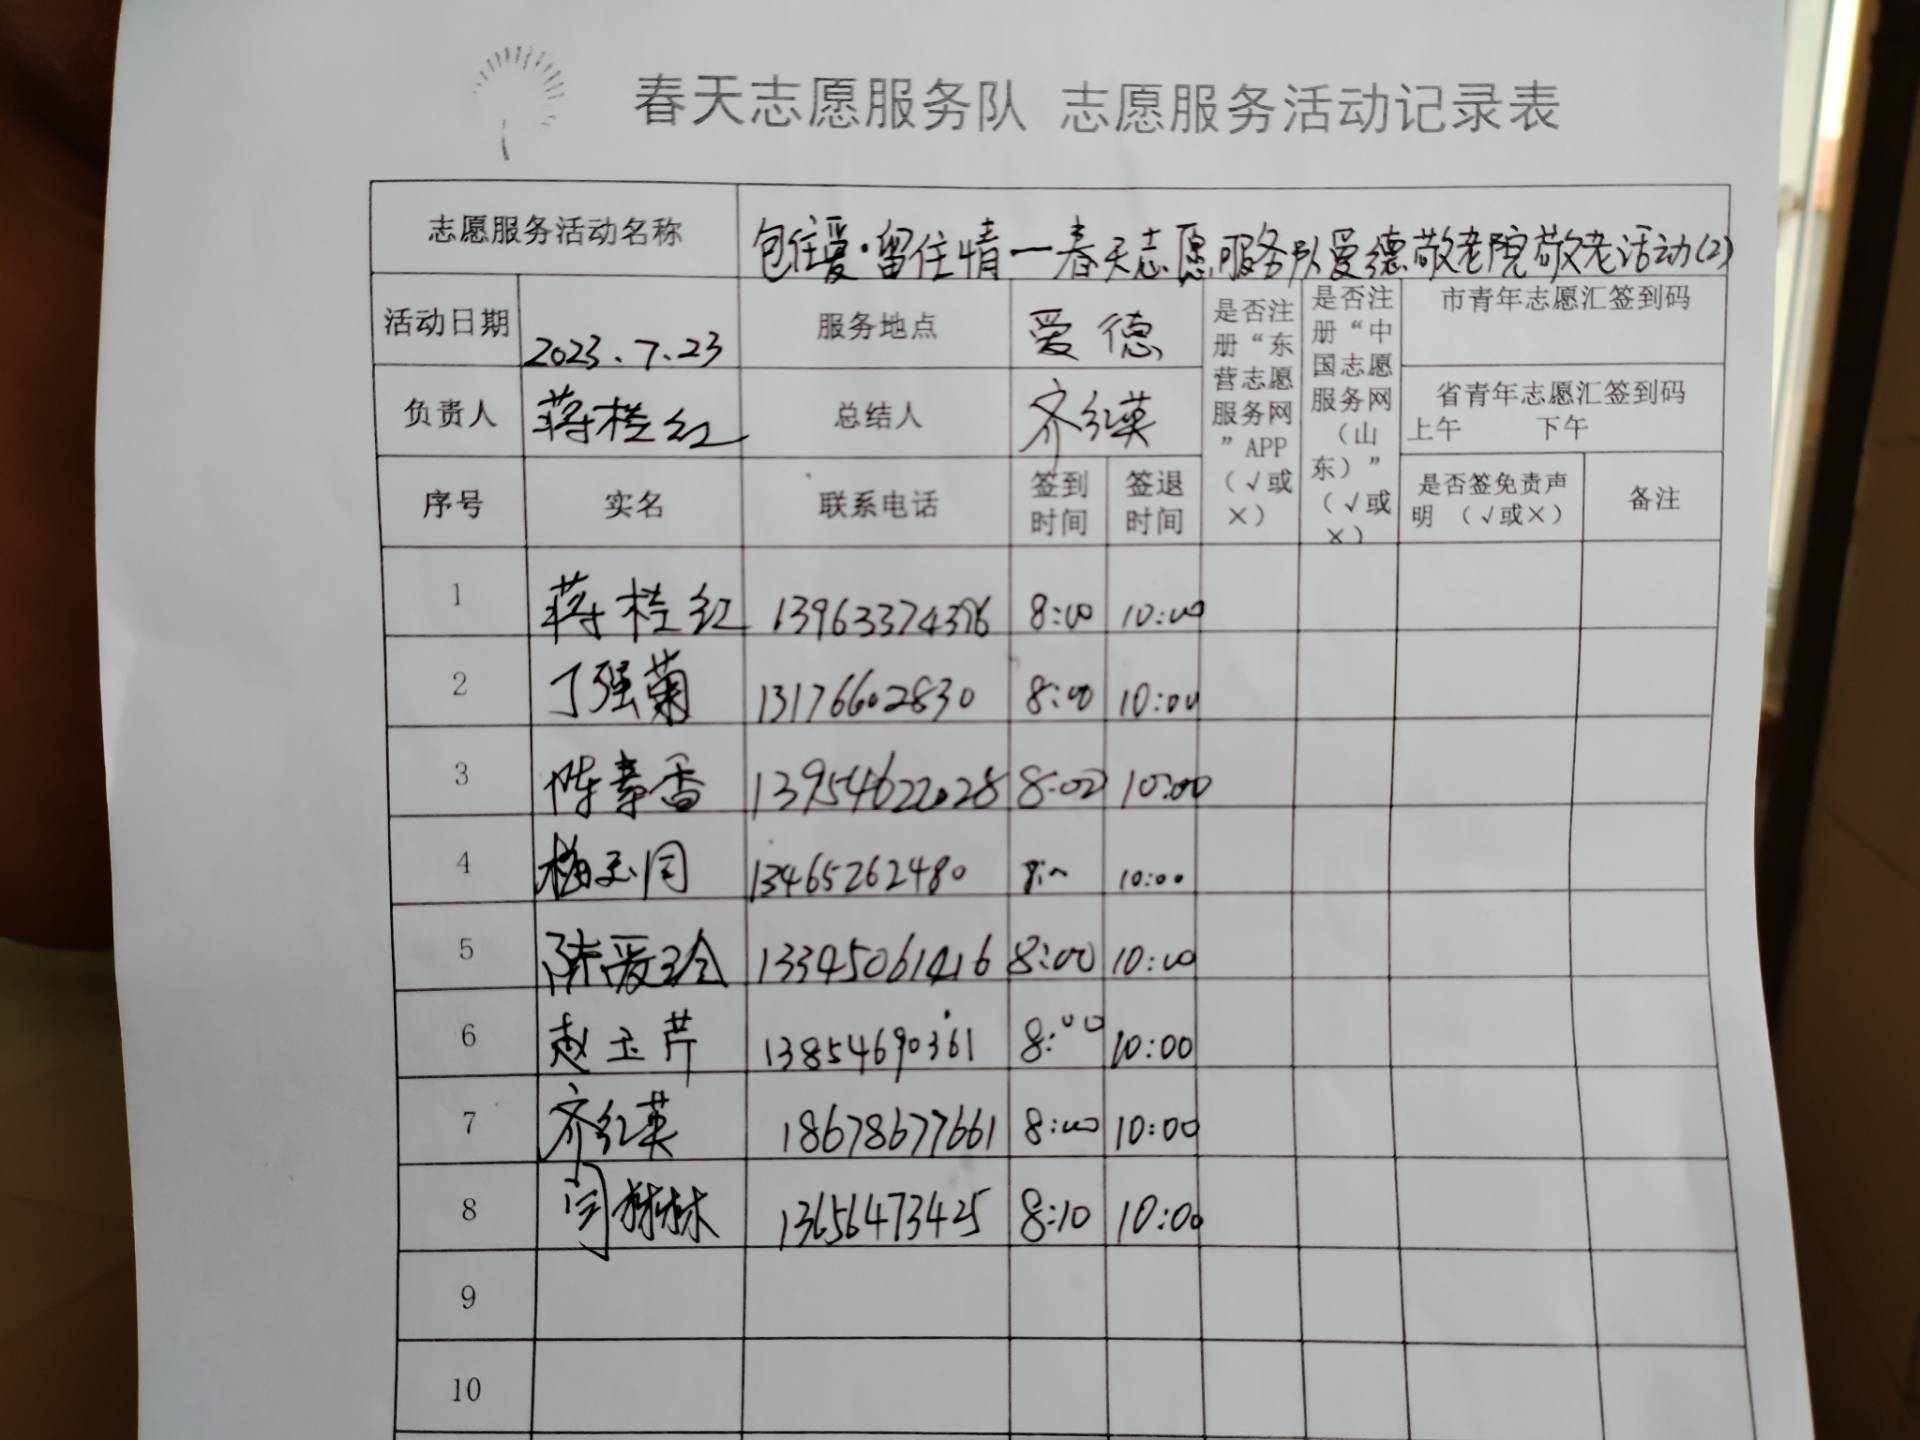 春天志愿服务队 志愿服务活动记录表
志愿服务活动名称 包住爱·留住情一春天志愿服务队爱德敬老院敬老活动(2)
活动日期 2023.7.23 服务地点 爱德
负责人 蒋桂红 总结人 齐红英
是否注册“东营志愿服务网”APP（√或×）
是否注册“中国志愿服务网（山东）”（√或×）
市青年志愿汇签到码
省青年志愿汇签到码
上午 下午
序号 实名 联系电话 签到时间 签退时间 是否签免责声明（√或×） 备注
1 蒋桂红 13963374376 8:00 10:00
2 丁强菊 13176602830 8:00 10:00
3 陈香 13954622028 8:00 10:00
4 梅玉同 13465262480 10:00
5 陈爱玲 13345061416 8:00 10:00
6 赵玉芹 13854690361 8:00 10:00
7 齐红英 18678677661 8:00 10:00
8 闫树林 13656473425 8:10 10:00
9
10